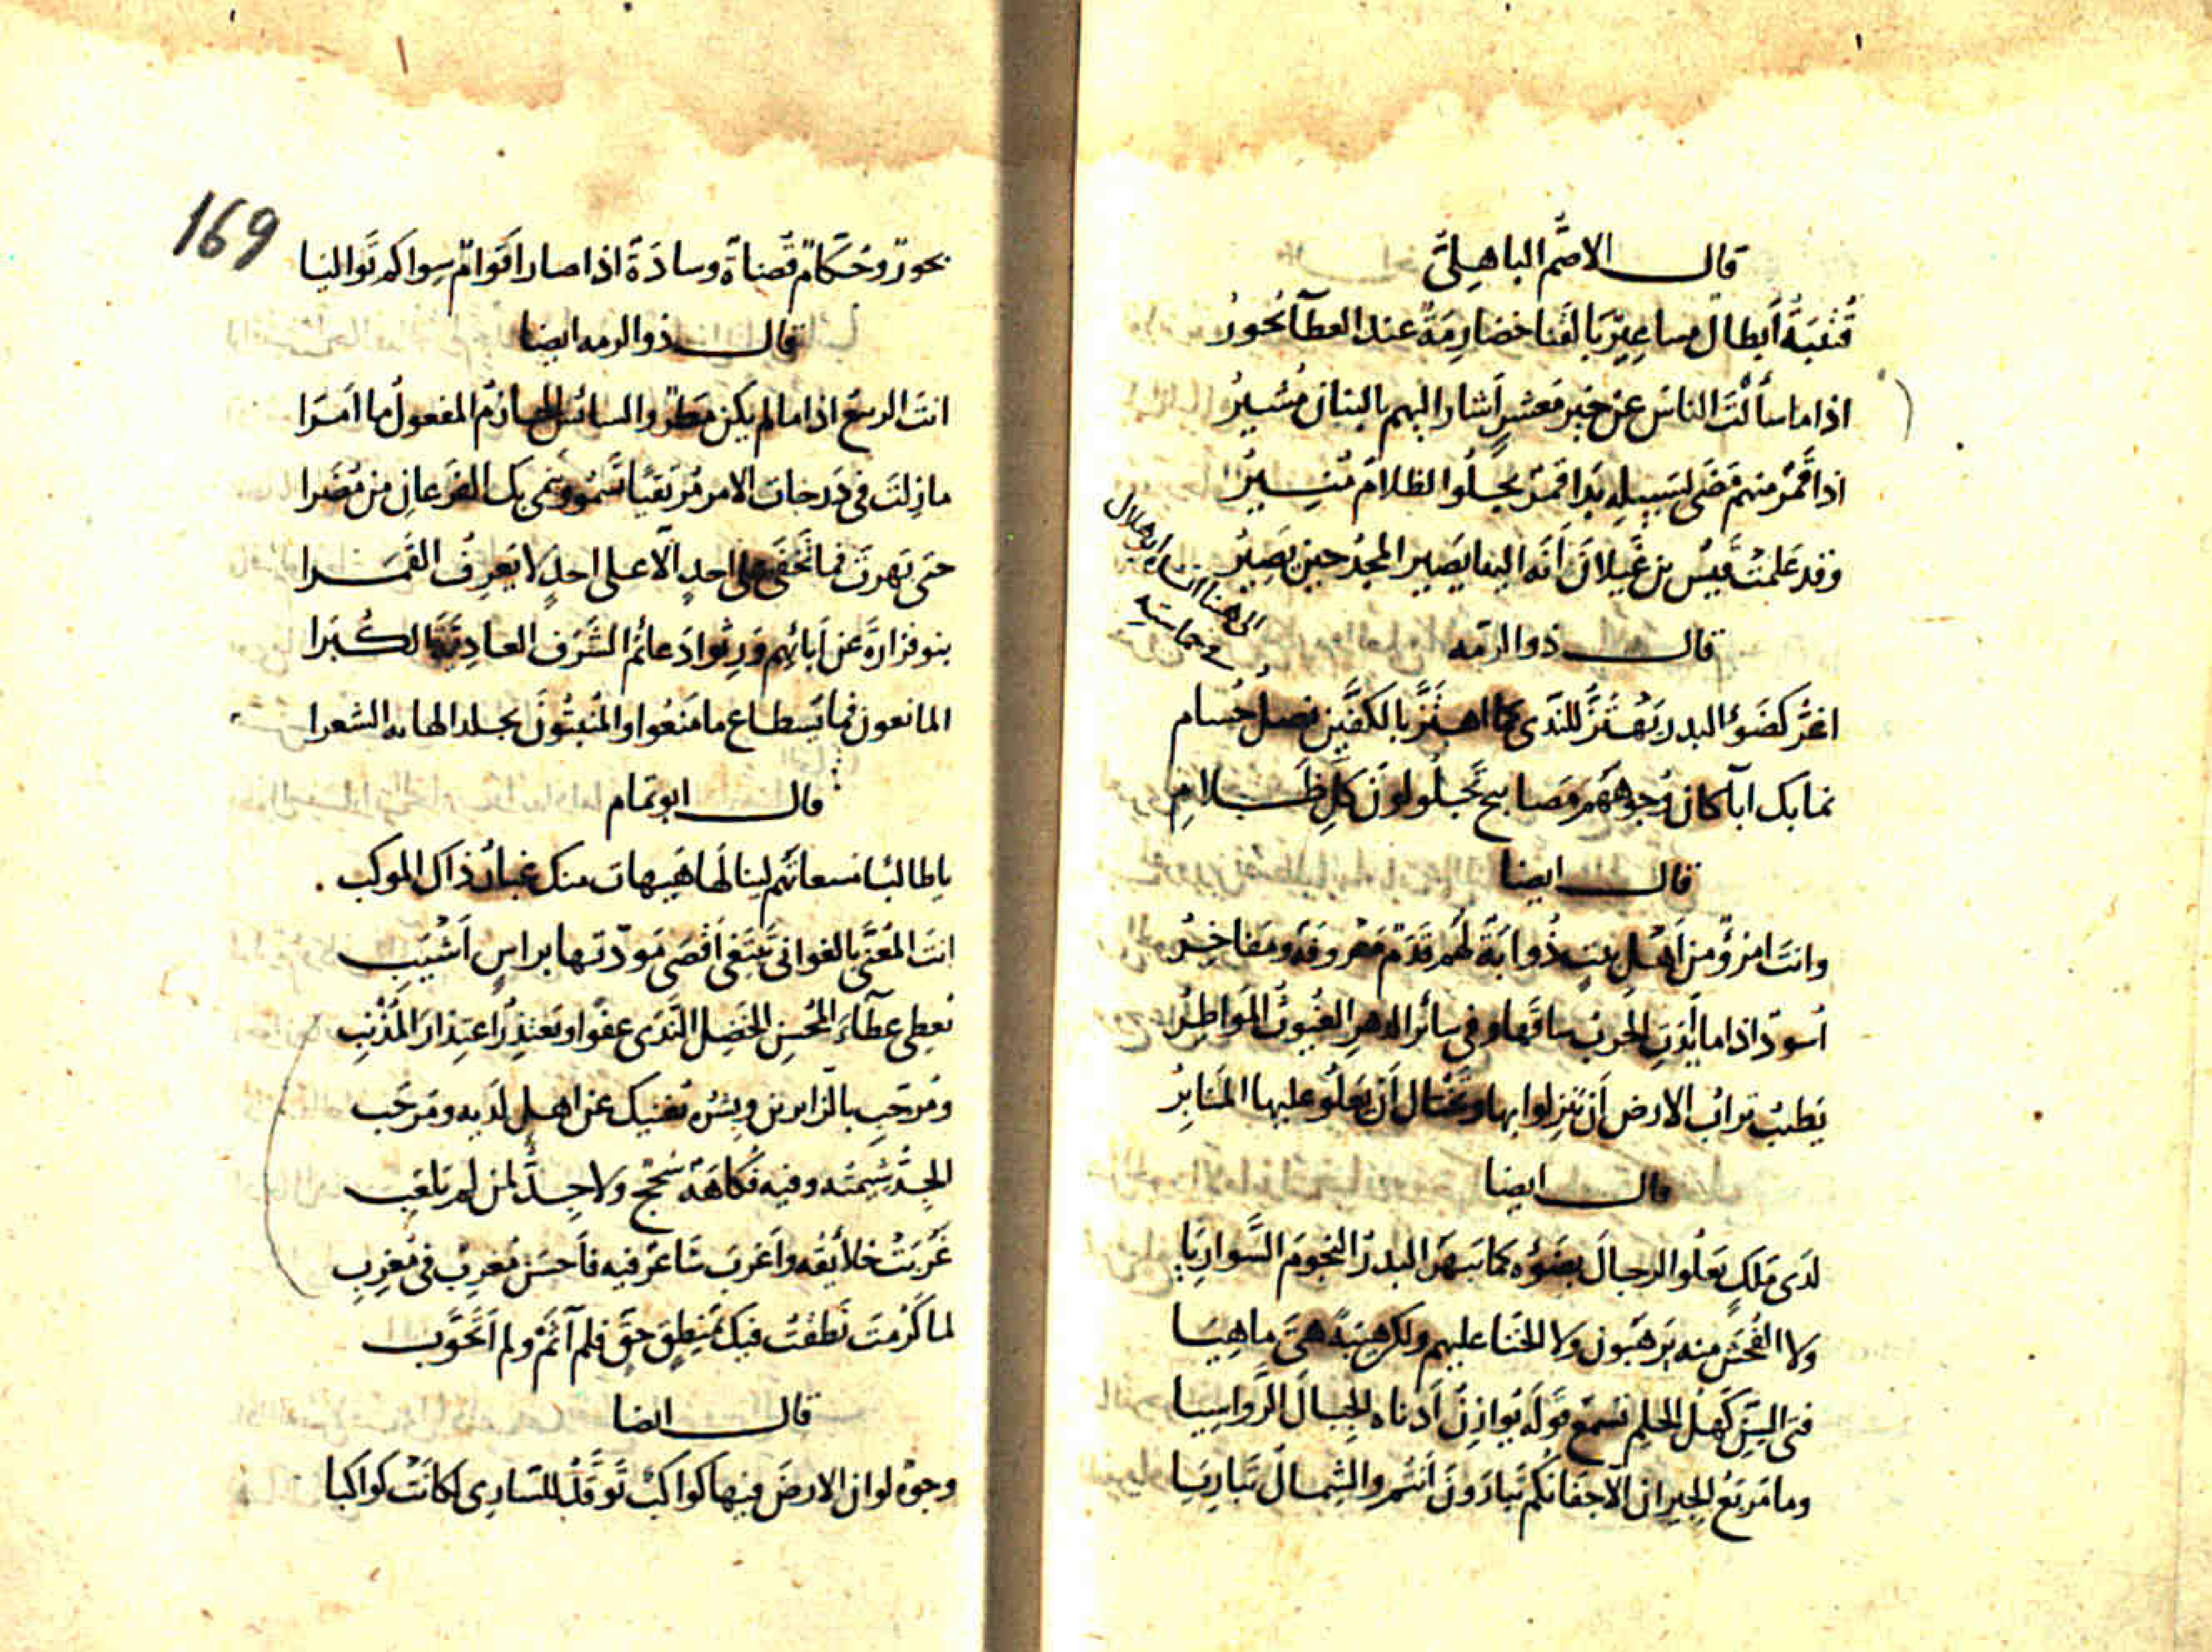 قال الاصم الباهلي
قتيبة أبطال مساعير بالقنا خضارمة عند العطآ بحور
اذا ما سألت الناس عن خير معشر أشار اليهم بالبنان مشير
اذا قمر منهم مضى لسبيله بدا قمر يجلوا الظلام منير
وقد علمت قيس بن غيلان أنه الينا يصير المجد حين يصير
قال ذو الرمه
اغر كضوء البدر يهتز للندى كما اهتز بالكفين نصل حسام
نما بك ابآ كان وجوههم مصابيح تجلو لون كل ظلام
قال ايضا
وانت امرؤ من اهل بيت ذوابة لهم قدم معروفة ومفاخر
أسود اذا ما ابدت الحرب ساقها وفي سائر الدهر الغيوث المواطر
يطيب تراب الارض أن تنزلوا بها وتختال أن تعلو عليها المنابر
قال ايضا
لدى ملك يعلوا الرجال بضوئه كما يبهر البدر النجوم السواريا
ولا الفحش منه يرهبون ولا الخنا عليهم ولكن هيبة هي ما هيا
فتى السن كهل الحلم تسمع قوله يوازن أدناه الجبال الرواسيا
وما مرتع الجيران الا جفانكم تبارون أنتم والشمال تباريا
169
بحور وحكام قضاة وسادة اذا صار اقوام سواكم تواليا
قال ذو الرمه ايضا
انت الربيع اذا ما لم يكن مطر والسائس الحازم المفعول ما امرا
ما زلت في درجات الامر مرتقيا تسمو وينمي بك الفرعان من مضرا
حتى بهرت فما تخفى على احد الا على احد لا يعرف القمرا
بنو فزارة عن آبائهم ورثوا دعائم الشرف العادية الكبرا
المانعون فما يسطاع ما منعوا والمنبتون بجلد الهامه الشعرا
قال ابو تمام
يا طالبا مسعاتهم لينالها هيهات منك غبار ذاك الموكب
انت المعنى بالغواني تبتغي أقصى مودتها براس أشيب
يعطي عطآء المحسن الخضل الندى عفوا ويعتذر اعتذار المذنب
ومرحب بالزايرين وبشره يغنيك عن اهل لديه ومرحب
الجد شيمته وفيه فكاهة سجح ولا جد لمن لم يلعب
غربت خلائقه وأغرب شاعر فيه فأحسن مغرب في مغرب
لما كرمت نطقت فيك بمنطق حق فلم آثم ولم أتحوب
قال ايضا
وجوه لو ان الارض فيها كواكب توقد للساري لكانت كواكبا